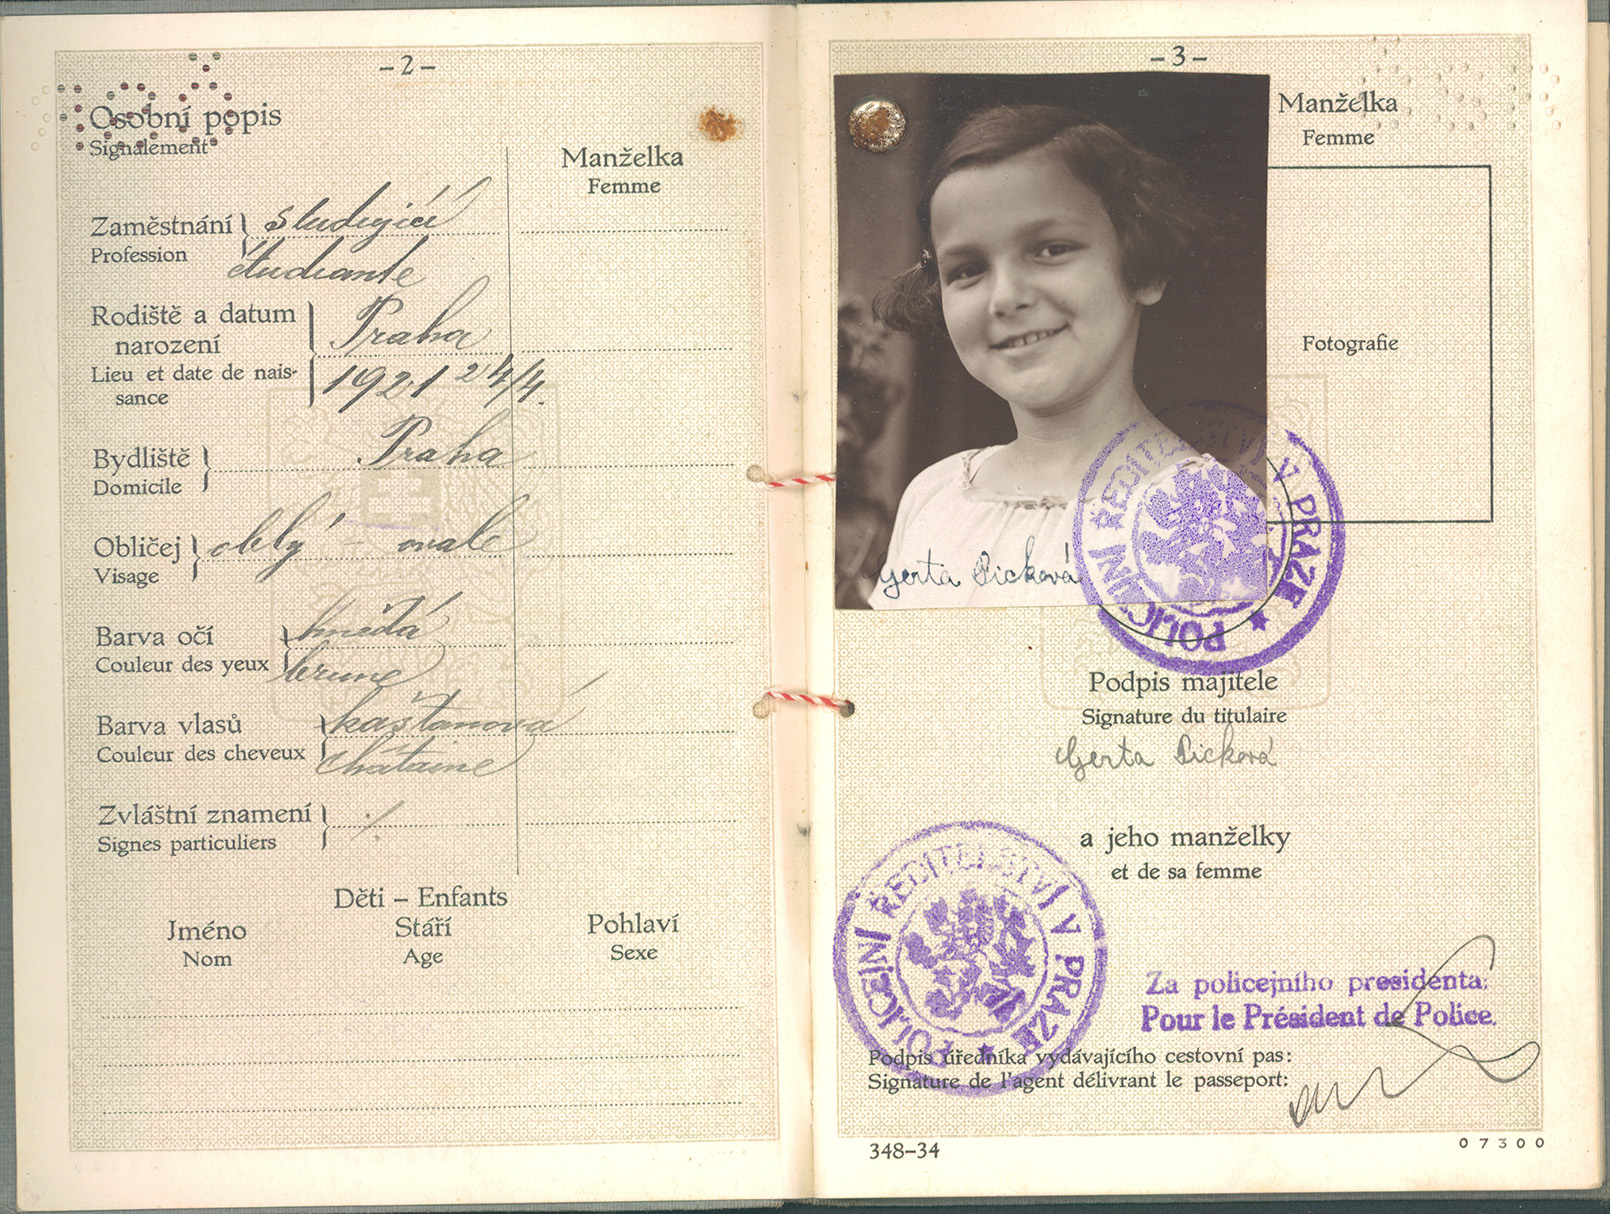 – 2 –
Osobní popis
Signalement
Manželka
Femme
Zaměstnání
Profession
studující
étudiante
Rodiště a datum
narození
Lieu et date de nais-
sance
Praha
1921 24/4.
Bydliště
Domicile
Praha
Obličej
Visage
oblý – ovale
Barva očí
Couleur des yeux
hnědá
brune
Barva vlasů
Couleur des cheveux
kaštanová
châtaine
Zvláštní znamení
Signes particuliers
Děti – Enfants
Jméno Stáří Pohlaví
Nom Age Sexe
– 3 –
Manželka
Femme
Fotografie
Gerta Picková
POLICEJNÍ ŘEDITELSTVÍ V PRAZE
Podpis majitele
Signature du titulaire
Gerta Picková
a jeho manželky
et de sa femme
POLICEJNÍ ŘEDITELSTVÍ V PRAZE
Za policejního presidenta:
Pour le Président de Police.
Podpis úředníka vydávajícího cestovní pas:
Signature de l'agent délivrant le passeport:
348–34
07300